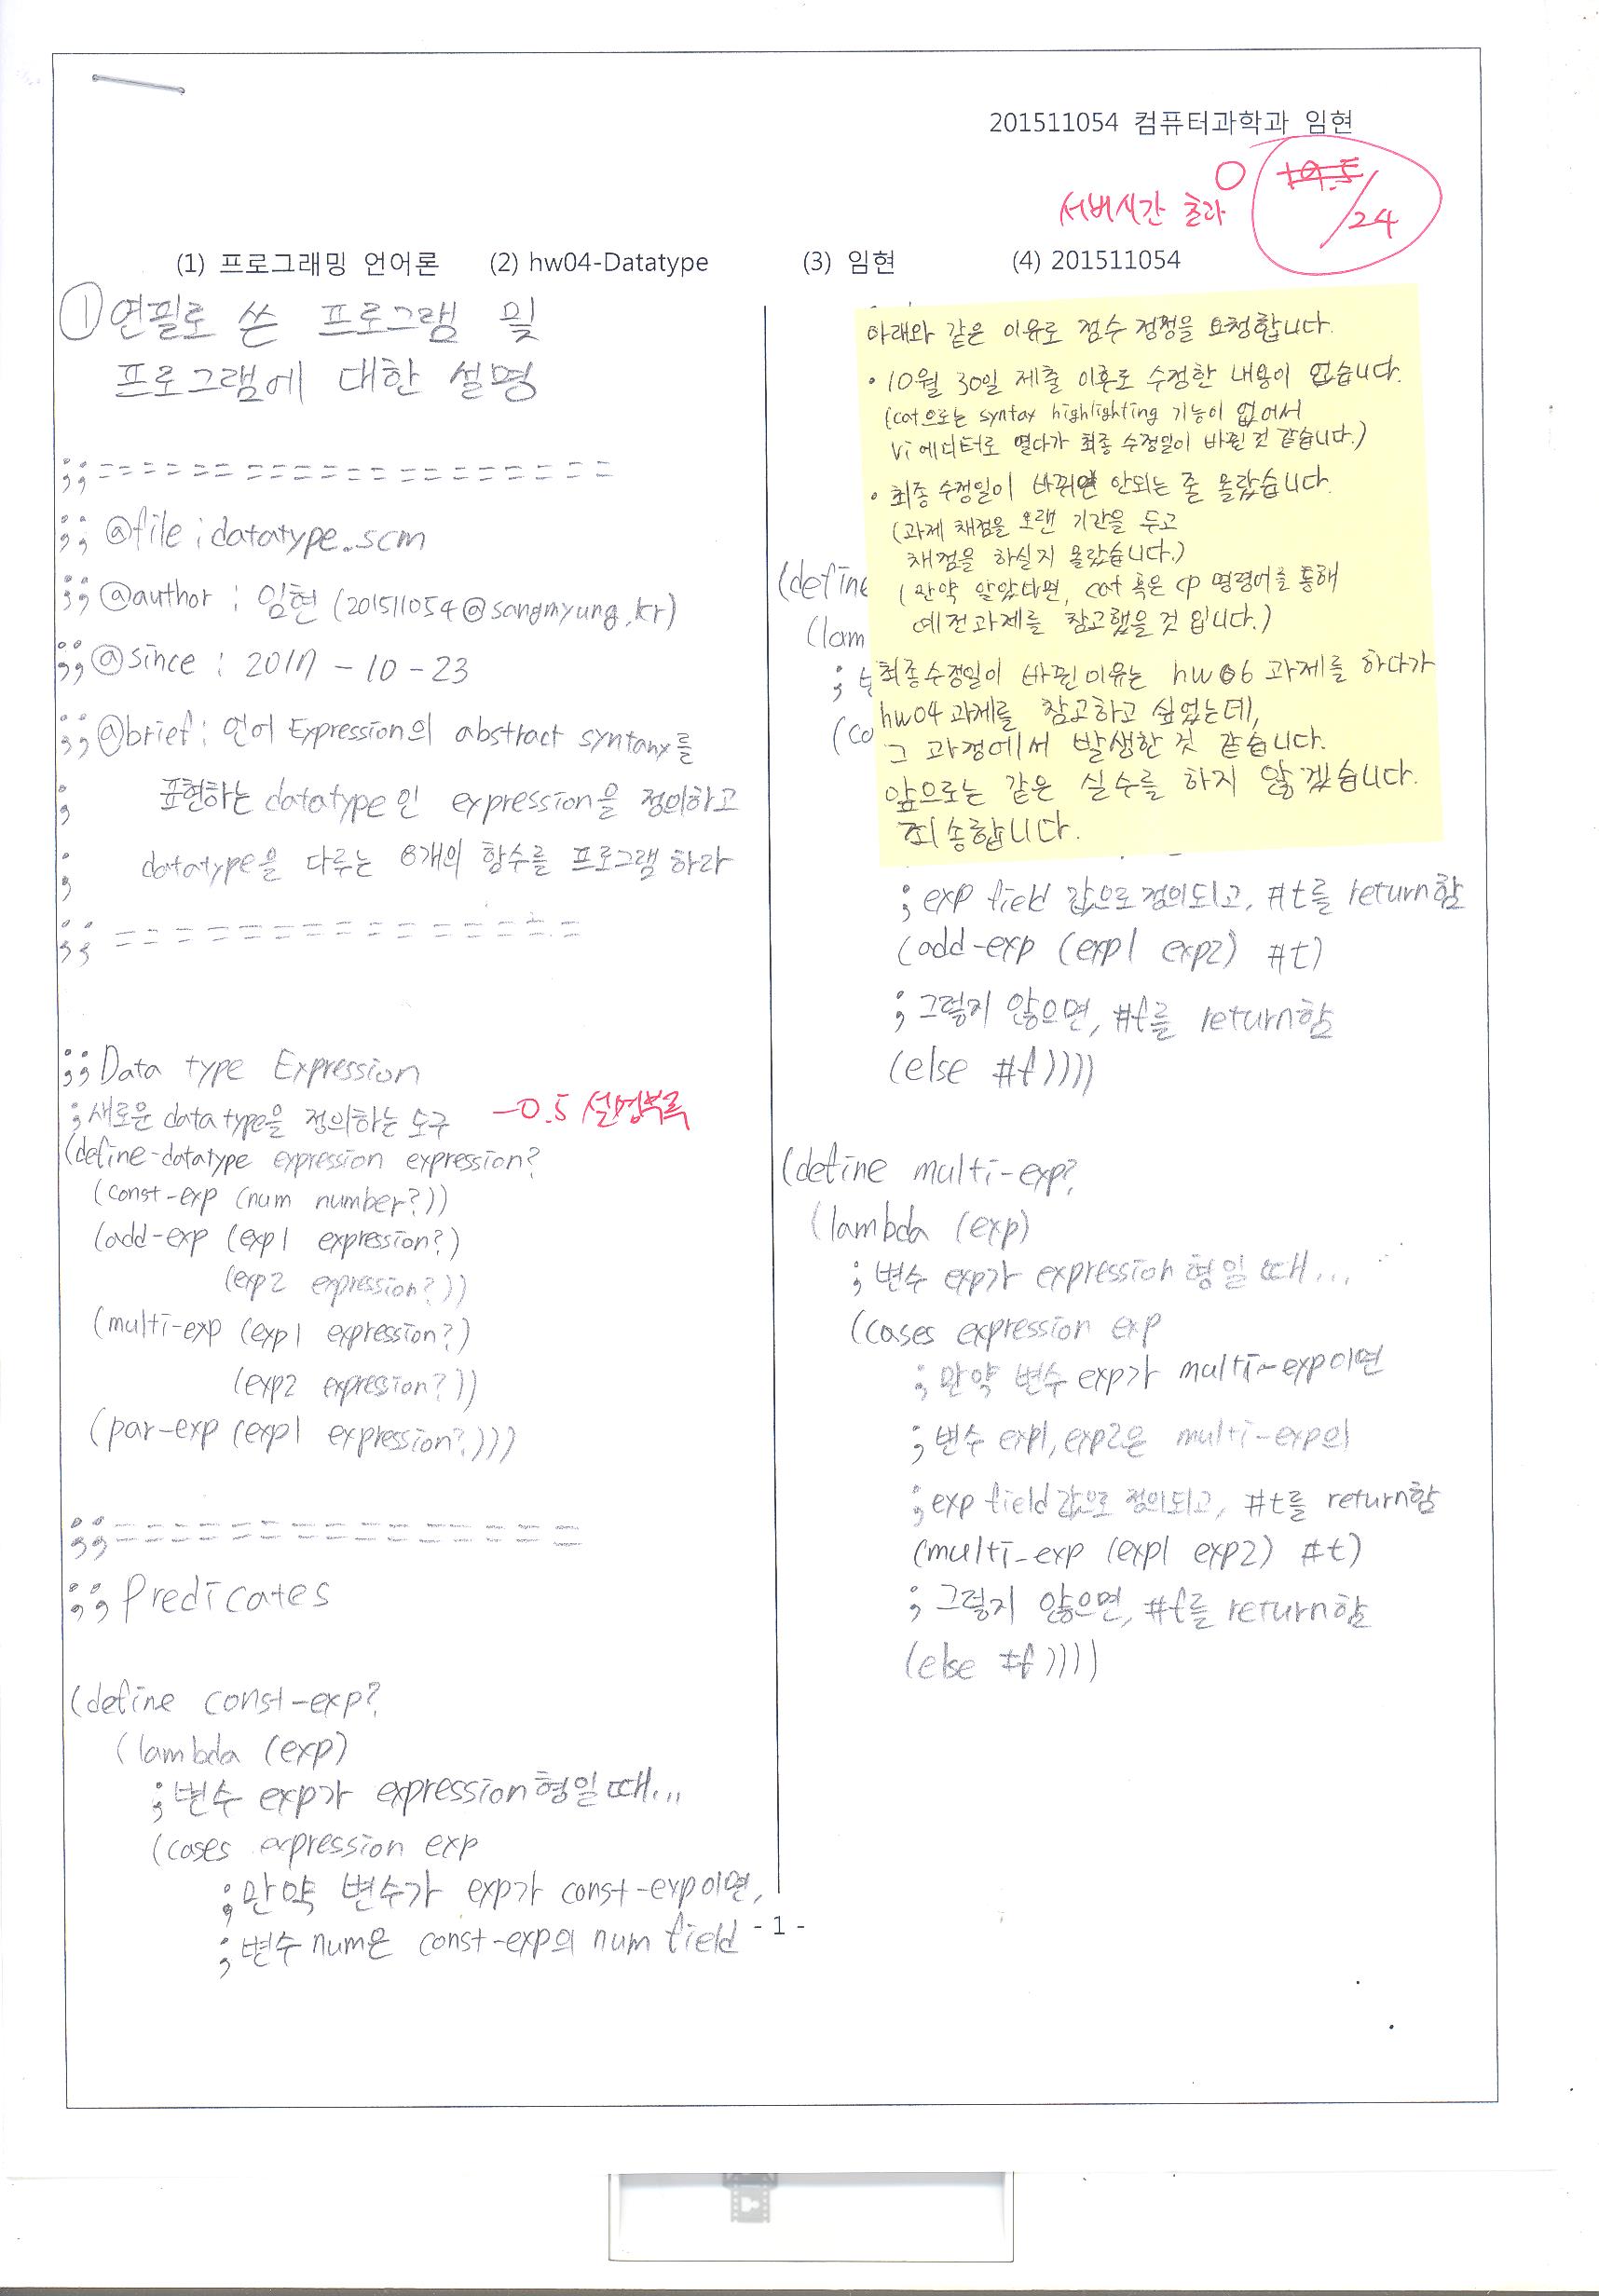 201511054 컴퓨터과학과 임현
0 19.5/24
서버시간 초과
(1) 프로그래밍 언어론 (2) hw04-Datatype (3) 임현 (4) 201511054
① 연필로 쓴 프로그램 및
프로그램에 대한 설명
;;==================
;; @file : datatype.scm
;; @author : 임현 (201511054@sangmyung.kr)
;; @since : 2017-10-23
;; @brief : 언어 Expression의 abstract syntanx를
; 표현하는 datatype인 expression을 정의하고
; datatype을 다루는 8개의 함수를 프로그램 하라
;; ================
;; Data type Expression
; 새로운 data type을 정의하는 도구 -0.5 설명부족
(define-datatype expression expression?
(const-exp (num number?))
(add-exp (exp1 expression?)
(exp2 expression?))
(multi-exp (exp1 expression?)
(exp2 expression?))
(par-exp (exp1 expression?)))
;;================
;; Predicates
(define const-exp?
(lambda (exp)
; 변수 exp가 expression형일 때...
(cases expression exp
; 만약 변수가 exp가 const-exp이면,
; 변수 num은 const-exp의 num field
아래와 같은 이유로 점수 정정을 요청합니다.
• 10월 30일 제출 이후로 수정한 내용이 없습니다.
(cat으로는 syntax highlighting 기능이 없어서
Vi에디터로 열다가 최종 수정일이 바뀐 것 같습니다.)
• 최종 수정일이 바뀌면 안되는 줄 몰랐습니다.
(과제 채점을 오랜 기간을 두고
채점을 하실지 몰랐습니다.)
(만약 알았다면, cat 혹은 cp 명령어를 통해
예전과제를 참고했을 것 입니다.)
최종수정일이 바뀐 이유는 hw06 과제를 하다가
hw04 과제를 참고하고 싶었는데,
그 과정에서 발생한 것 같습니다.
앞으로는 같은 실수를 하지 않겠습니다.
죄송합니다.
(define
(lam
;
(ca
; exp field 값으로 정의되고, #t를 return함
(add-exp (exp1 exp2) #t)
; 그렇지 않으면, #f를 return함
(else #f))))
(define multi-exp?
(lambda (exp)
; 변수 exp가 expression형일 때...
(cases expression exp
; 만약 변수 exp가 multi-exp이면
; 변수 exp1, exp2은 multi-exp의
; exp field 값으로 정의되고, #t를 return함
(multi-exp (exp1 exp2) #t)
; 그렇지 않으면, #f를 return함
(else #f))))
- 1 -